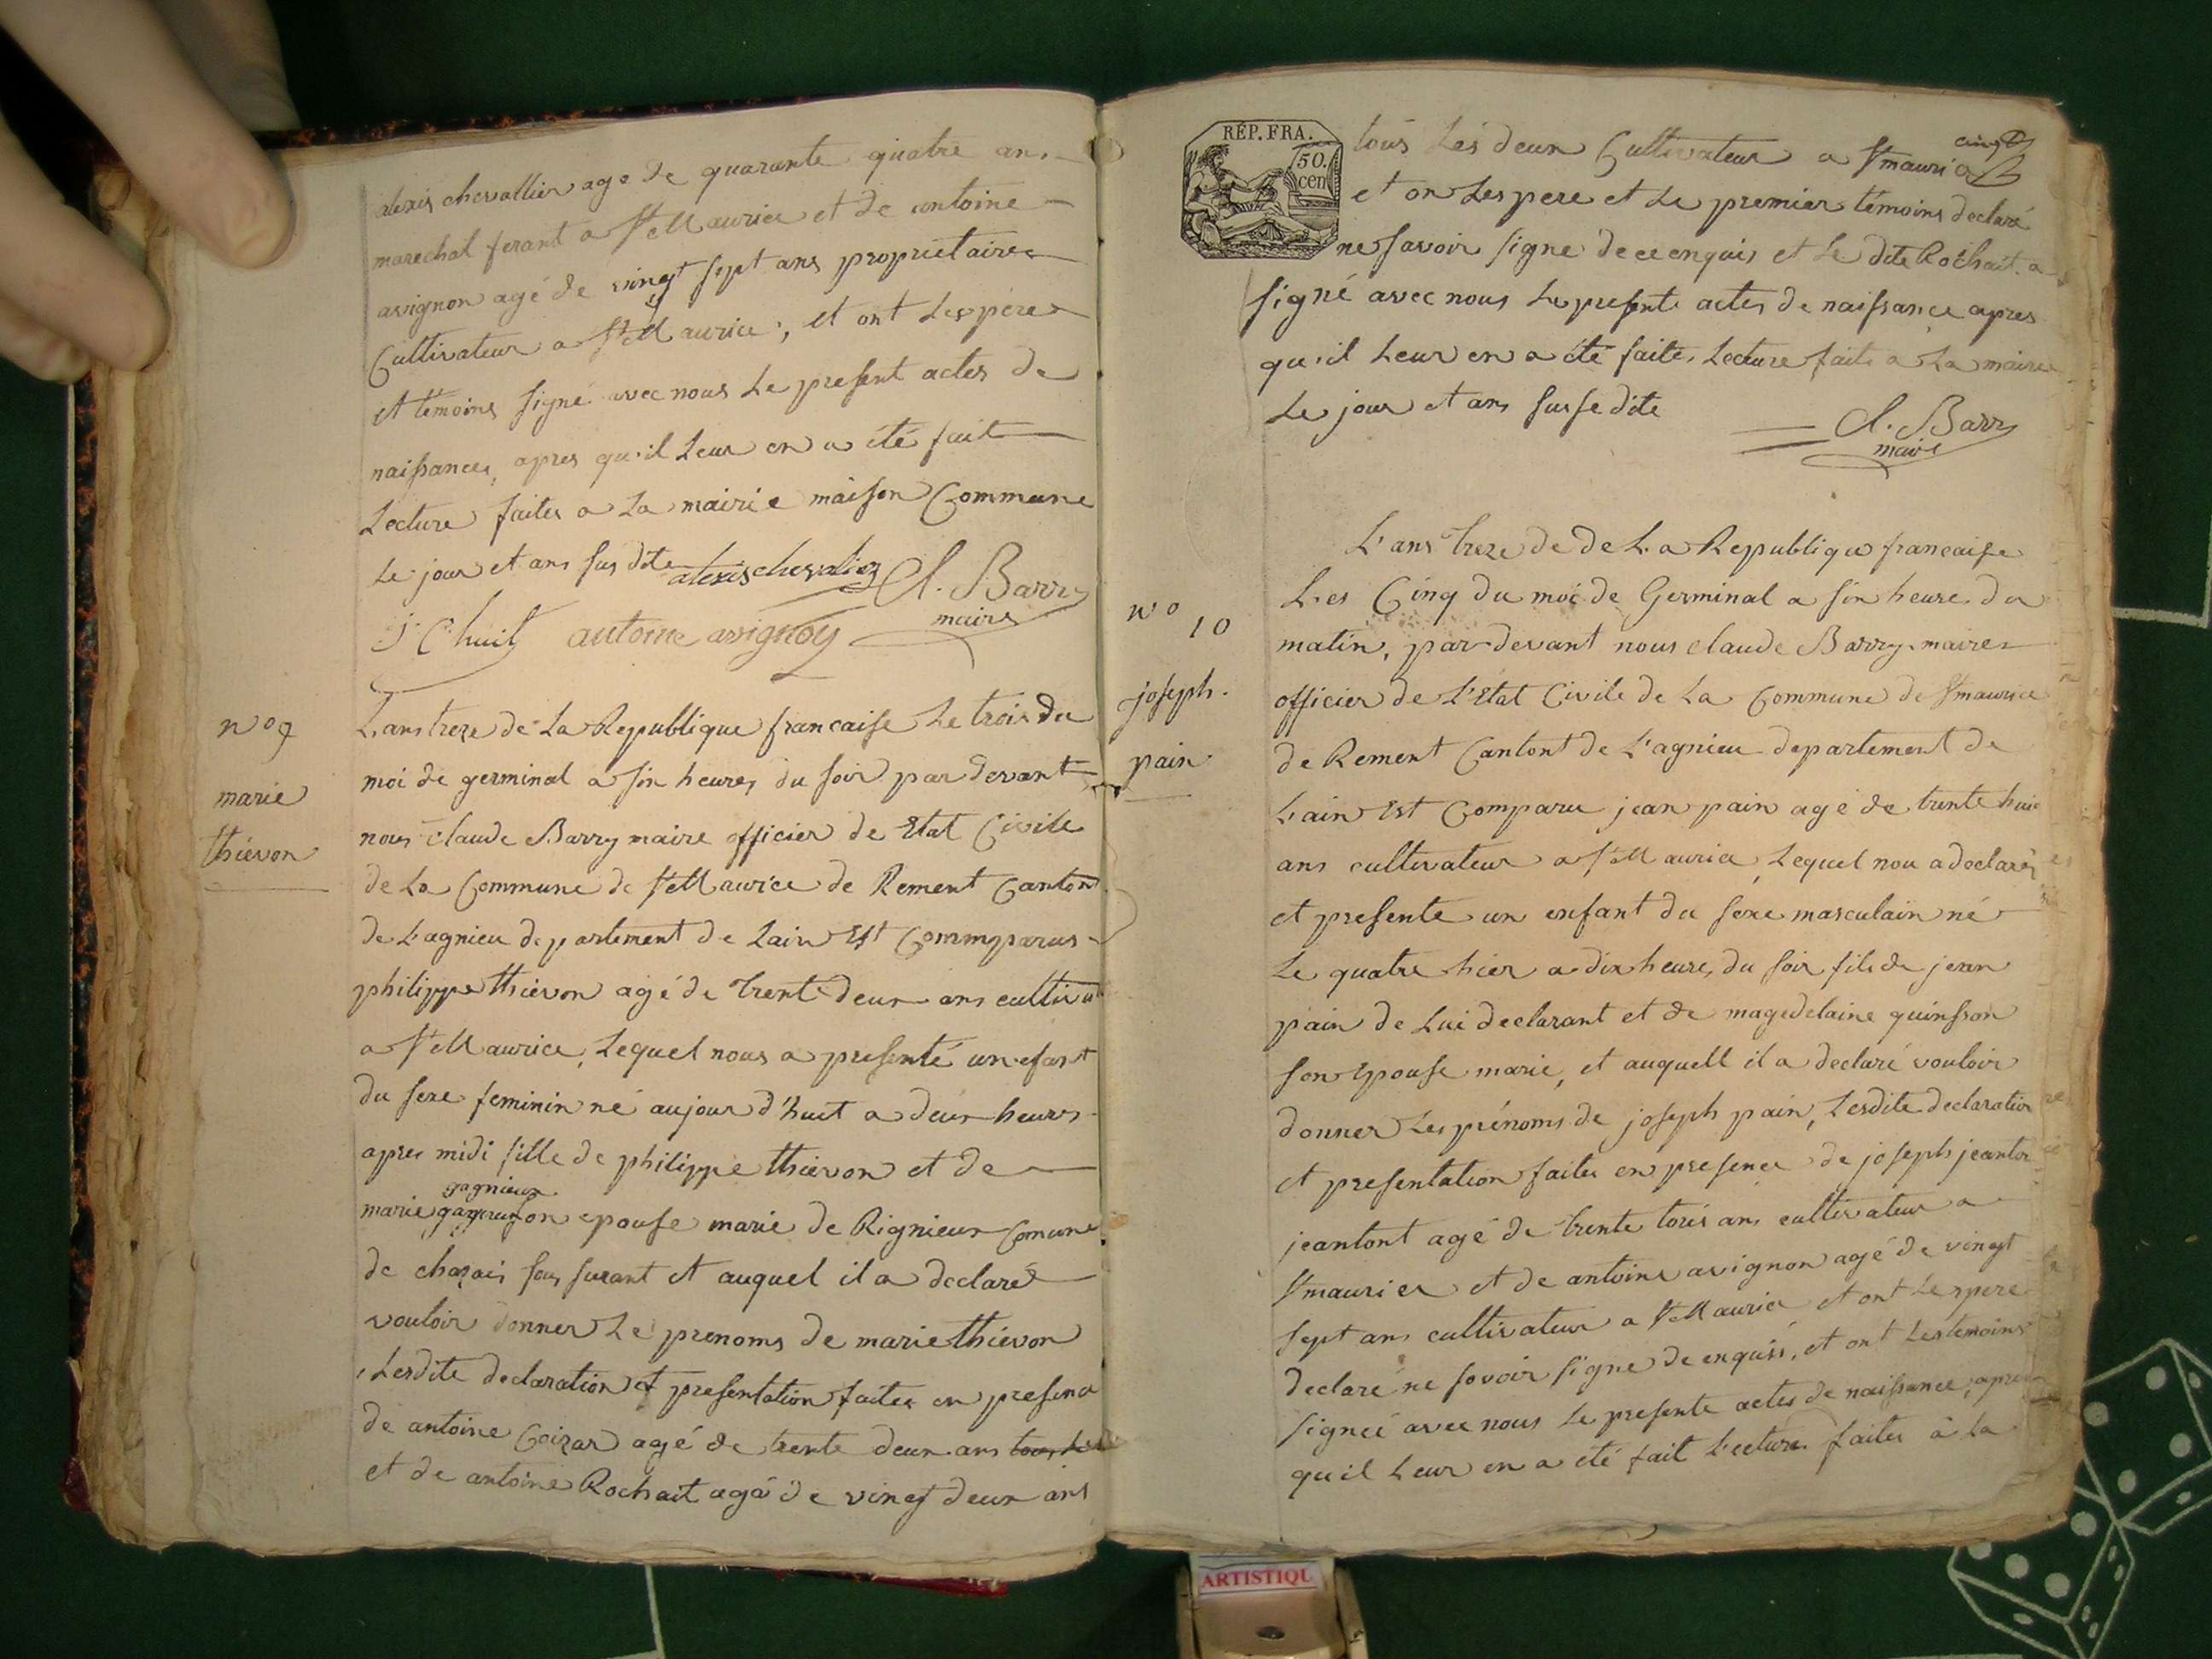 alexis chevallier agé de quarante quatre ans
marechal ferant a St Maurice et de antoine
avignon agé de vingt sept ans proprietaires
Cultivateur a St Maurice, et ont Les pére
et temoins signé avec nous Le present actes de
naissances, apres qu'il Leur en a été fait
Lecture faites a La mairie maison Commune
Le jour et ans sus dite
alexis chevalier Cl. Barry
maire
J Chuit antoine avignon
n° 9
marie
thievon
L'ans treze de La Republique francaise Le trois du
moi de germinal a sin heures du soir par devant
nous claude Barry maire officier de Etat Civile
de La Commune de St Maurice de Rement Canton
de L'agnieu departement de Lain Est Commparus
philippe thievon agé de trente deux ans cultiva
a St Maurice, Lequel nous a presenté un efant
du sexe feminin né aujour d'huit a deux heures
apres midi fille de philippe thievon et de
gagnieux
marie son epouse marie de Rignieux Comune
de chazai sur surant et auquel il a declaré
vouloir donner Le prenoms de marie thievon
Lesdite declaration et presentation faites en presence
de antoine Coizar agé de trente deux ans tous Les
et de antoine Rochait agé de vingt deux ans
RÉP. FRA.
50.
cen
cinq
tous Les deux Cultivateur a St maurice
et on Les pere et Le premier témoins declaré
ne savoir signe de ce enquis et Le dite Rochait a
signé avec nous Le presente actes de naissance apres
qu'il Leur en a été faite Lecture faite a La maire
Le jour et ans susse dite
Cl. Barry
maire
n° 10
joseph.
pain
L'ans treze de de L.a Republique francaise
L.es Cinq du moi de Germinal a sin heure du
matin, par devant nous claude Barry maire
officier de L'Etat Civile de La Commune de St maurice
de Rement Cantont de L'agnieu departement de
L'ain Est Comparu jean pain agé de trente huit
ans cultivateur a St Maurice, Lequel nou a declaré
et presente un enfant du sexe masculain né
Le quatre hier a dix heures du soir fils de jean
pain de Lui declarant et de magedelaine quinsson
son Epouse marié, et auquell il a declaré vouloir
donner Les prénoms de joseph pain, Lesdite declaration
et presentation faites en presence de joseph jeanton
jeantont agé de trente toris ans cultivateur a
St maurice et de antoine avignon agé de vingt
sept ans cultivateur a St Maurice et ont Le pere
declaré ne savoir signe de enquis, et ont Les temoins
signeé avec nous Le presente actes de naissance, apres
qu il Leur en a été fait L'ecture faites a la
ARTISTIQU